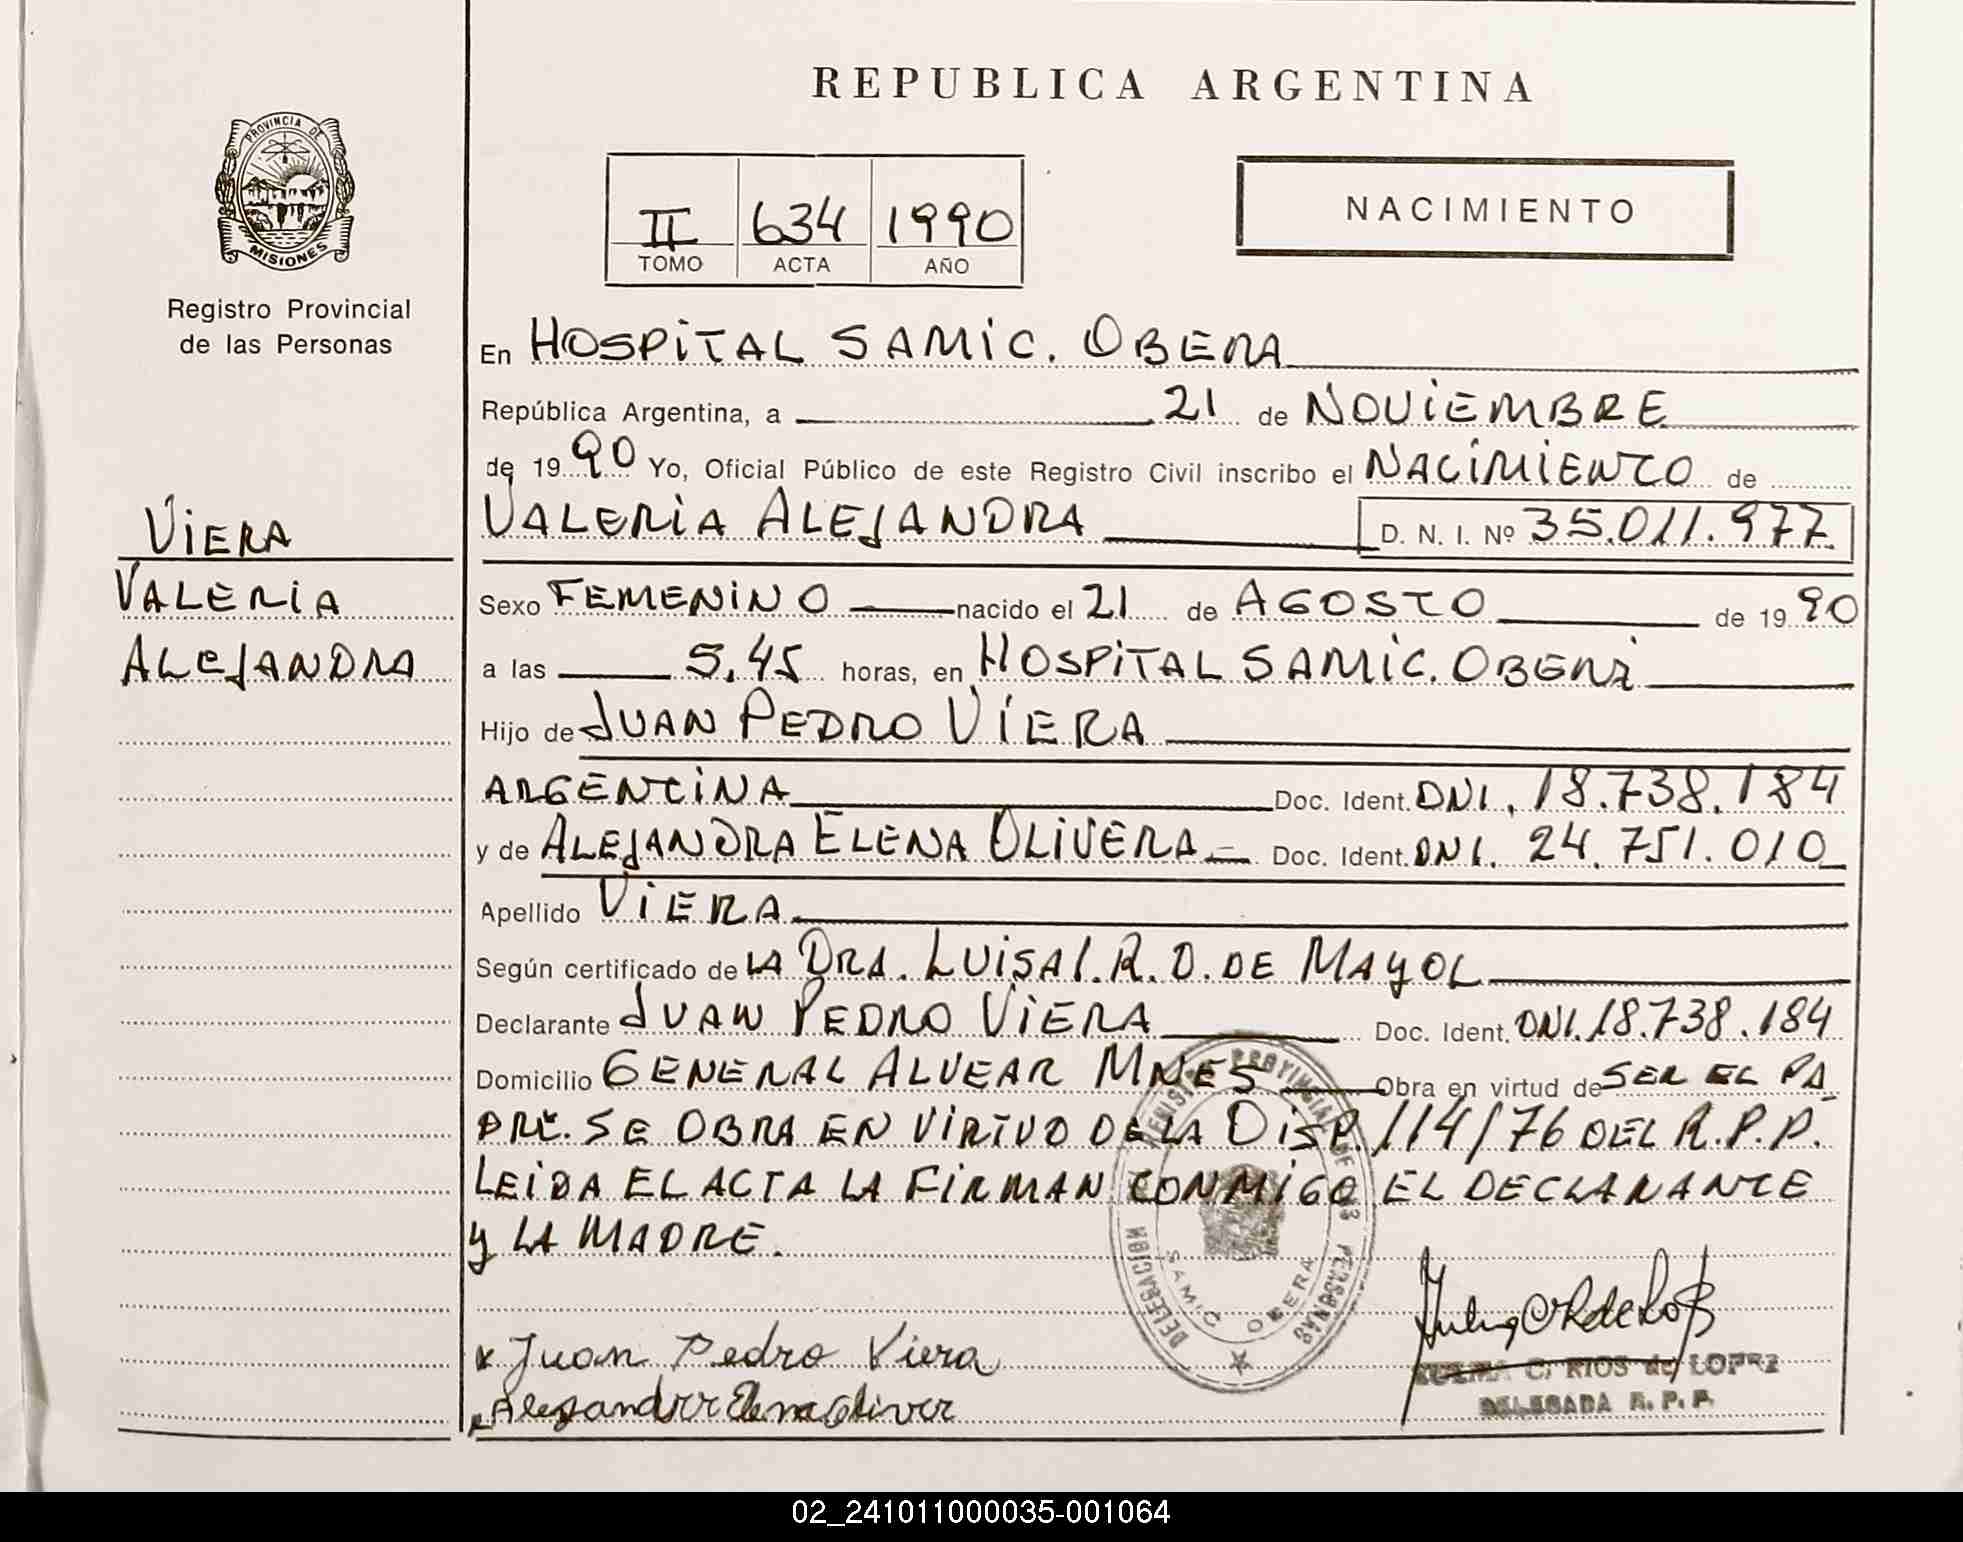 REPUBLICA ARGENTINA
PROVINCIA DE
MISIONES
Registro Provincial
de las Personas
II 634 1990
TOMO ACTA AÑO
NACIMIENTO
En HOSPITAL SAMIC. OBERA
República Argentina, a 21 de NOVIEMBRE
de 1990 Yo, Oficial Público de este Registro Civil inscribo el NACIMIENTO de
VIERA
VALERIA
ALEJANDRA
VALERIA ALEJANDRA D. N. I. Nº 35.011.977
Sexo FEMENINO nacido el 21 de AGOSTO de 1990
a las 5,45 horas, en HOSPITAL SAMIC. OBERÁ
Hijo de JUAN PEDRO VIERA
ARGENTINA Doc. Ident. DNI. 18.738.184
y de ALEJANDRA ELENA OLIVERA Doc. Ident. DNI. 24.751.010
Apellido VIERA
Según certificado de LA DRA. LUISA I. R. D. DE MAYOL
Declarante JUAN PEDRO VIERA Doc. Ident. DNI. 18.738.184
Domicilio GENERAL ALVEAR MNES Obra en virtud de SER EL PA
DRE. SE OBRA EN VIRTUD DE LA DISP. 114/76 DEL R.P.P.
LEIDA EL ACTA LA FIRMAN CONMIGO EL DECLARANTE
y LA MADRE.
REGISTRO PROVINCIAL DE LAS PERSONAS
DELEGACION
SAMIC OBERA
x Juan Pedro Viera
Alejandra Elena Oliver
C. RIOS de LOPEZ
DELEGADA R. P. P.
02_241011000035-001064